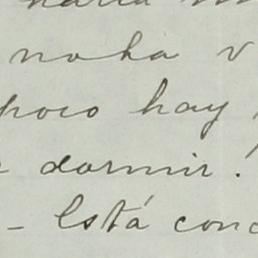 noha v
poco hay
dormir!
- Está conc